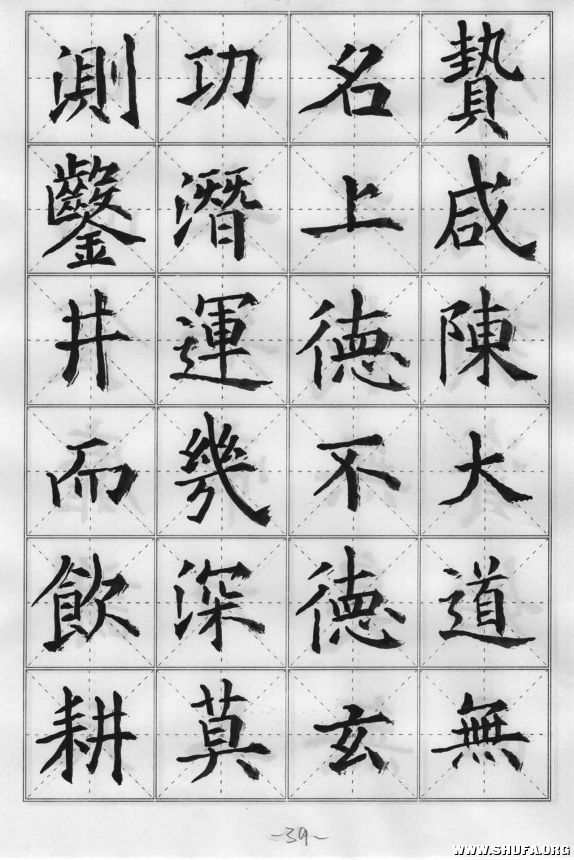 贄咸陳大道無
名上德不德玄
功潛運幾深莫
測鑿井而飲耕
-39-
WWW.SHUFA.ORG